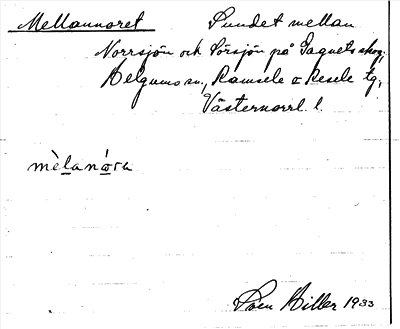 Mellannoret Sundet mellan
Norrsjön och Sörsjön på Gaguets skog,
Helgums sn., Ramsele o Resele tg,
Västernorrl. l.
mèlanó̀ra
Sven Hiller 1933